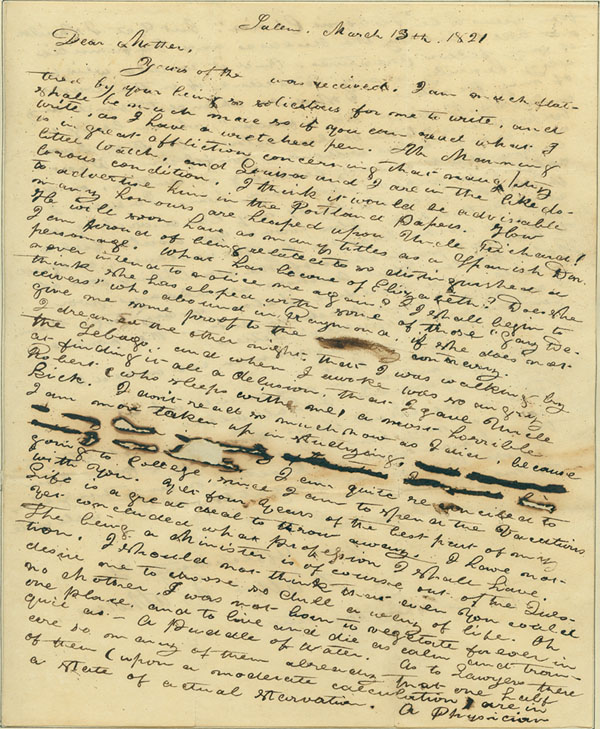 Salem. March 13th. 1821
Dear Mother,
Yours of the was received. I am much flat-
tered by your being so solicitous for me to write, and
shall be much more so if you can read what I
write, as I have a wretched pen. Mr. Manning
is in great affliction concerning that naughty
little Watch, and Louisa and I are in the like do-
lorous condition. I think it would be advisable
to advertise him in the Portland Papers. How
many honours are heaped upon Uncle Richard!
He will soon have as many titles as a Spanish Don.
I am proud of being related to so distinguished a
personage. What has become of Elizabeth? Does she
never intend to notice me again? I shall begin to
think she has eloped with some of those "gay de-
ceivers" who abound in Raymond, if she does not
give me some proof to the contrary.
I dreamed the other night that I was walking by
the Sebago, and when I awoke was so angry
at finding it all a delusion, that I gave Uncle
Robert (who sleeps with me) a most horrible
kick. I dont read so much now as I did, because
I am more taken up in studying.
I am quite reconciled to
going to College, since I am to spend the Vacations
with you. Yet four years of the best part of my
Life is a great deal to throw away. I have not
yet concluded what profession I shall have.
The being a Minister is of course out of the Ques-
tion. I should not think that even you could
desire me to choose so dull a way of life. Oh
no Mother, I was not born to vegetate forever in
one place, and to live and die as calm and tran-
quil as - A Puddle of Water. As to Lawyers there
are so many of them already that one half
of them (upon a moderate calculation) are in
a state of actual starvation.
A Physician